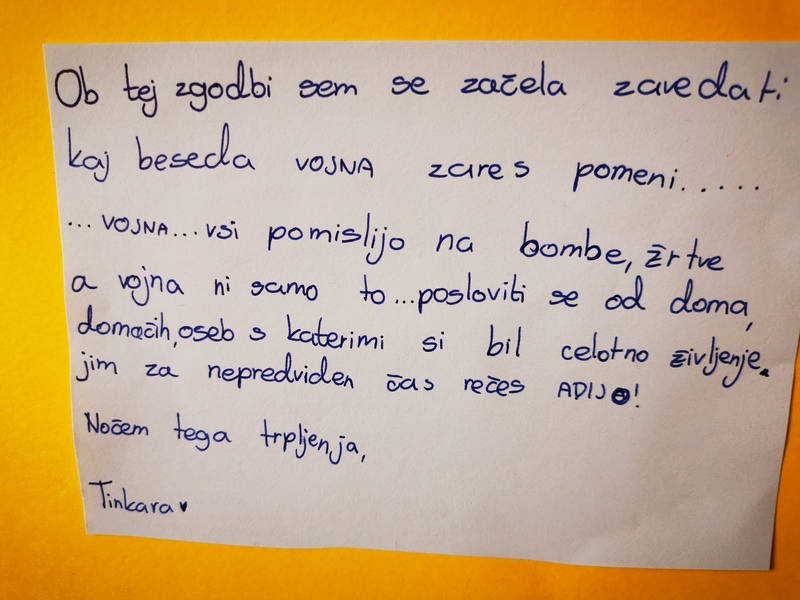 Ob tej zgodbi sem se začela zavedati
kaj beseda VOJNA zares pomeni.....
...VOJNA...vsi pomislijo na bombe, žrtve
a vojna ni samo to...posloviti se od doma,
domačih, oseb s katerimi si bil celotno življenje.
jim za nepredviden čas rečes ADIJO!
Nočem tega trpljenja,
Tinkara♥